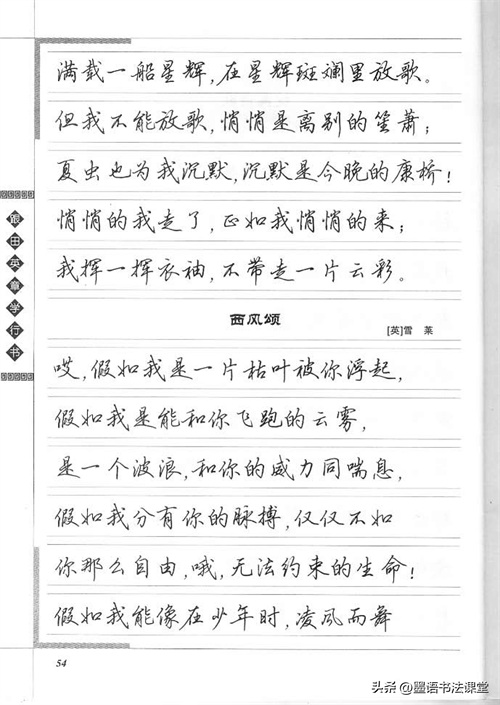 满载一船星辉,在星辉斑斓里放歌。
但我不能放歌,悄悄是离别的笙萧;
夏虫也为我沉默,沉默是今晚的康桥!
悄悄的我走了,正如我悄悄的来;
我挥一挥衣袖,不带走一片云彩。
西风颂
[英]雪 莱
哎,假如我是一片枯叶被你浮起,
假如我是能和你飞跑的云雾,
是一个波浪,和你的威力同喘息,
假如我分有你的脉搏,仅仅不如
你那么自由,哦,无法约束的生命!
假如我能像在少年时,凌风而舞
跟田英章学行书
54
头条 @墨语书法课堂